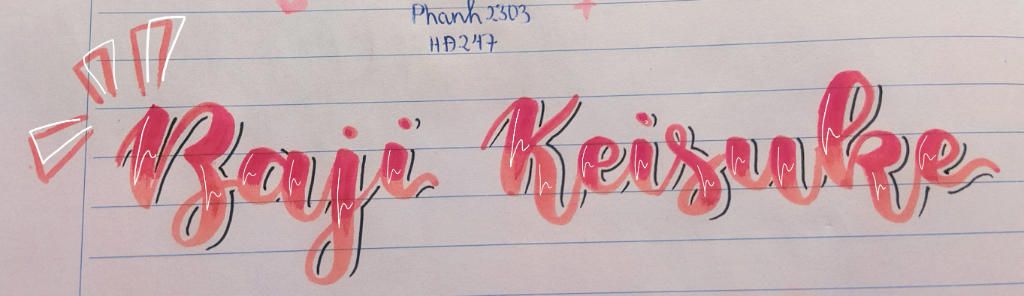 Phanh2303
HD247
Baji Keisuke